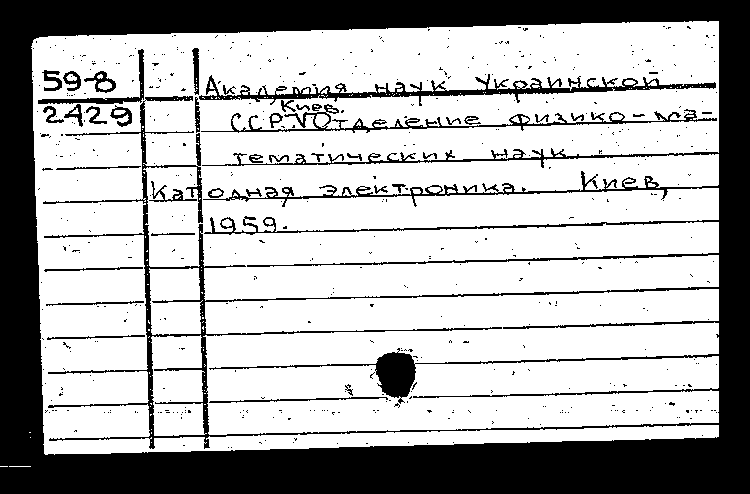 59-8 Академия наук Украинской
Киев.
2429 ССР.VОтделение физико-ма-
тематических наук.
Катодная электроника. Киев,
1959.